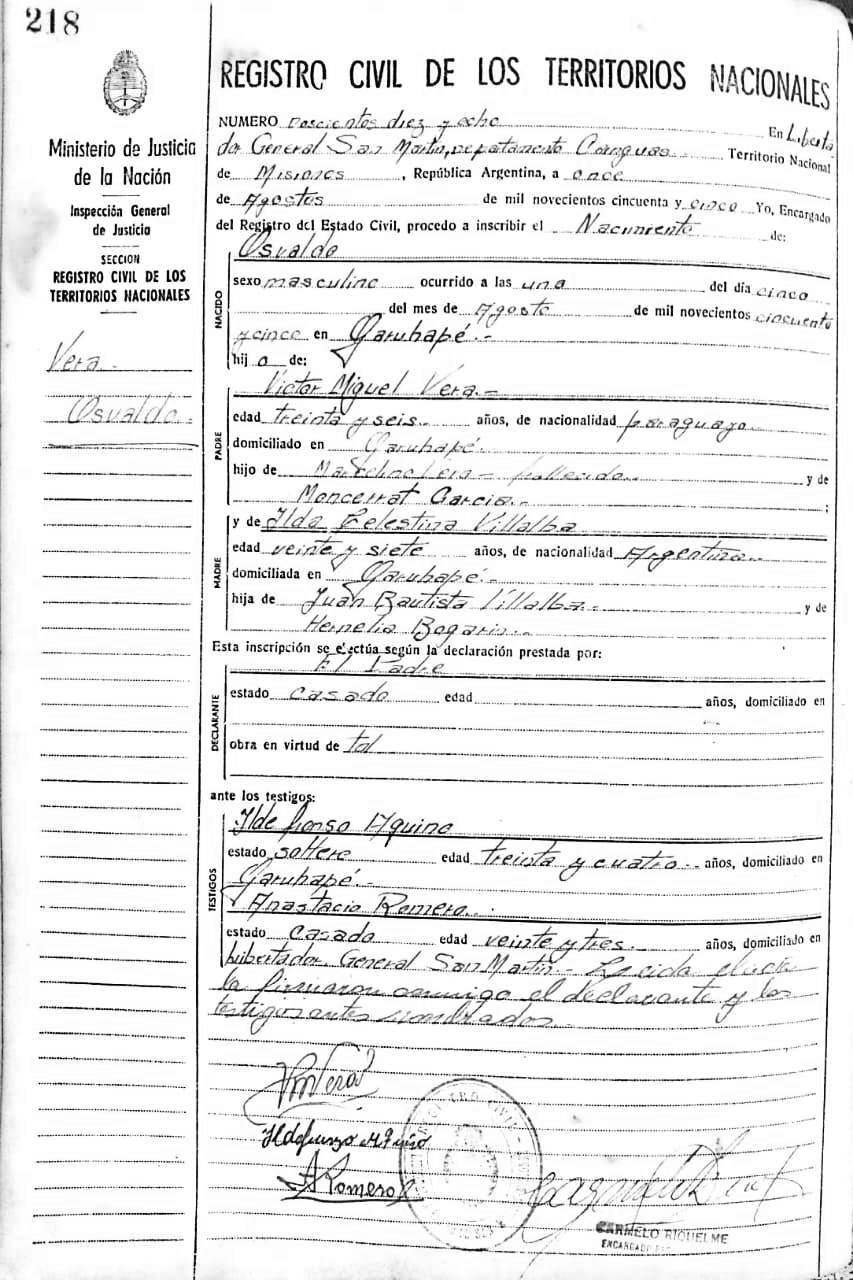 218
Ministerio de Justicia
de la Nación
Inspección General
de Justicia
SECCION
REGISTRO CIVIL DE LOS
TERRITORIOS NACIONALES
Vera.-
Osvaldo.-
REGISTRO CIVIL DE LOS TERRITORIOS NACIONALES
NUMERO Doscientos diez y ocho En Liberta
dor General San Martin, Departamento Cainguas. Territorio Nacional
de Misiones, República Argentina, a once
de Agostos de mil novecientos cincuenta y cinco Yo, Encargado
del Registro del Estado Civil, procedo a inscribir el Nacimiento de:
Osvaldo
NACIDO
sexo masculino ocurrido a las una del día cinco
del mes de Agosto de mil novecientos cincuenta
y cinco en Garuhapé.-
hijo de:
PADRE
Victor Miguel Vera.-
edad treinta y seis.- años, de nacionalidad paraguayo.-
domiciliado en Garuhapé.-
hijo de Marcelino - fallecido.- y de
Moncerrat Garcia.- ;
MADRE
y de Ilda Celestina Villalba
edad veinte y siete años, de nacionalidad Argentina.-
domiciliada en Garuhapé.-
hija de Juan Bautista Villalba.- y de
Hernelia Bogarin.-
Esta inscripción se efectúa según la declaración prestada por:
El Padre
DECLARANTE
estado casado edad años, domiciliado en
obra en virtud de tal
ante los testigos:
TESTIGOS
Ildefonso Aquino
estado soltero edad treinta y cuatro.- años, domiciliado en
Garuhapé.-
Anastacio Romero.-
estado casado edad veinte y tres.- años, domiciliado en
Libertador General San Martin.- Leida el acta
la firmaron conmigo el declarante y los
testigos antes nombrados.-
VMVera
Ildefonzo Aquino
ARomero
REGISTRO CIVIL
CARMELO RIQUELME
ENCARGADO